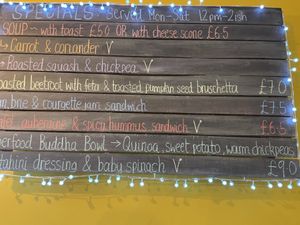 SPECIALS - Served Mon-Sat 12pm-2ish
SOUP - with toast £5.0 OR with cheese scone £6.5
→ Carrot & coriander V
→ Roasted squash & chickpea V
oasted beetroot with feta & toasted pumpkin seed bruschetta £7.0
brie & courgette jam sandwich £7.5
aubergine & spicy hummus sandwich V £6.5
erfood Buddha Bowl → Quinoa, sweet potato, warm chickpeas
tahini dressing & baby spinach V £9.0